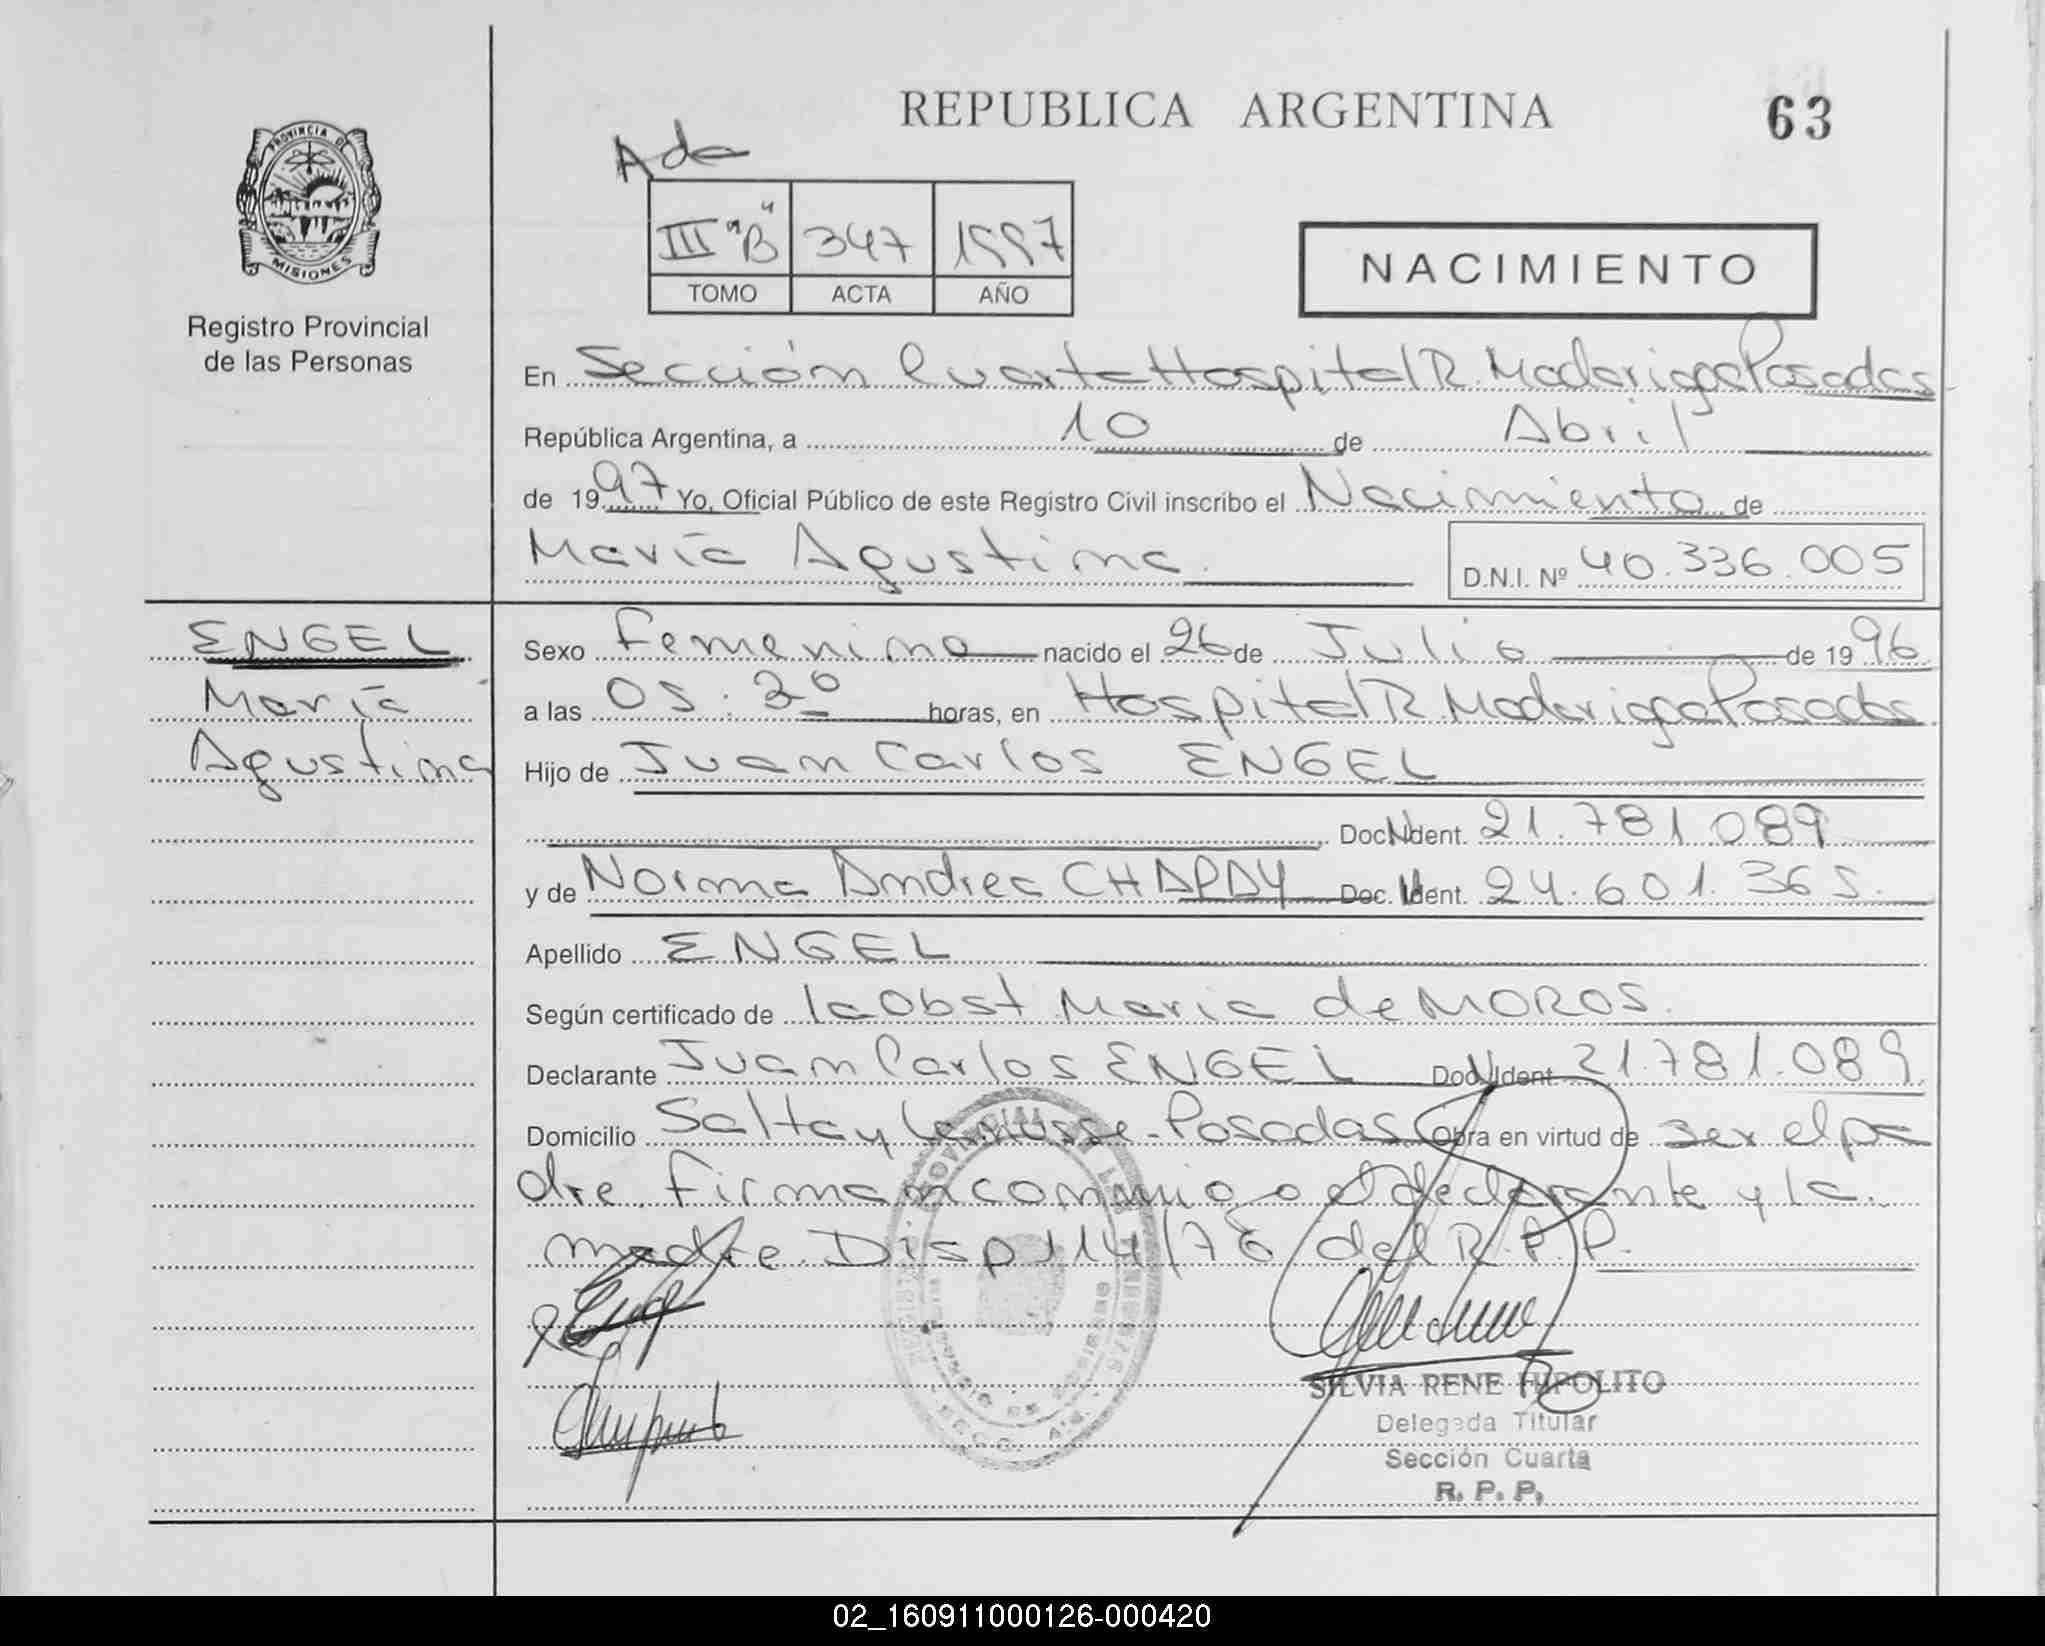 REPUBLICA ARGENTINA
63
PROVINCIA DE
MISIONES
Registro Provincial
de las Personas
Ada
III "B" 347 1997
TOMO ACTA AÑO
NACIMIENTO
En Sección Cuarta Hospital R. Madariaga Posadas
República Argentina, a 10 de Abril
de 1997 Yo, Oficial Público de este Registro Civil inscribo el Nacimiento de
María Agustina
D.N.I. Nº 40.336.005
ENGEL
María
Agustina
Sexo Femenino nacido el 26 de Julio de 1996
a las 05:30 horas, en Hospital R. Madariaga Posadas
Hijo de Juan Carlos ENGEL
Doc. Ident. 21.781.089
y de Norma Andrea Doc. Ident. 24.601.365
Apellido ENGEL
Según certificado de la Obst Maria de MOROS.
Declarante Juan Carlos ENGEL Doc. Ident. 21.781.089
Domicilio Salta y Lanusse - Posadas Obra en virtud de ser el pa
dre. Firman conmigo el declarante y la
madre. Disp 114/78 del R.P.P.
SILVIA RENE HIPOLITO
Delegada Titular
Sección Cuarta
R. P. P.
02_160911000126-000420